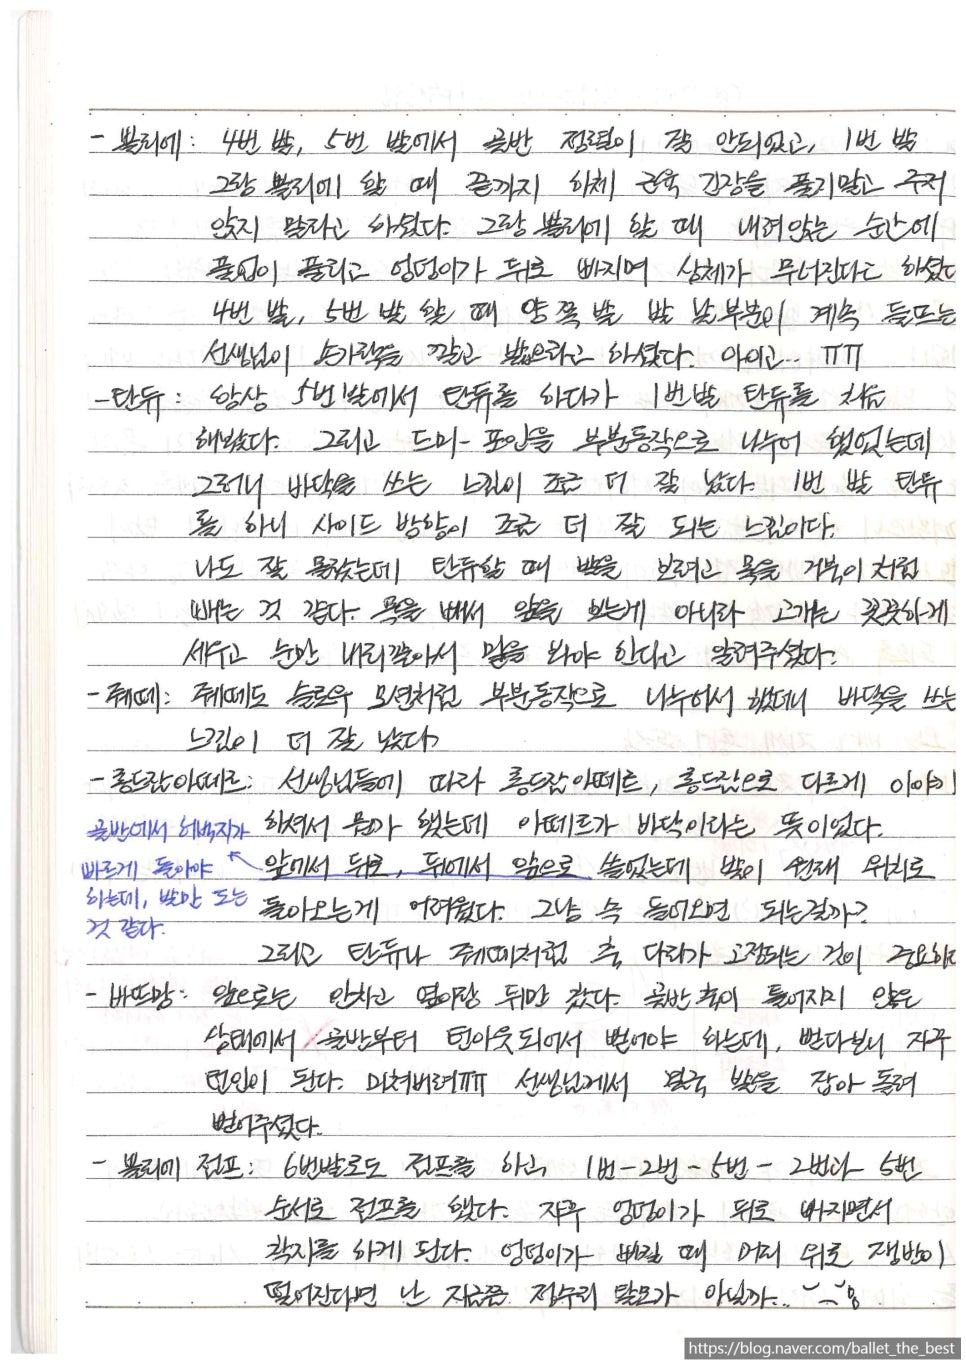 - 쁠리에: 4번 발, 5번 발에서 골반 정렬이 잘 안되었고, 1번 발
그랑 쁠리에 할 때 끝까지 하체 근육 긴장을 풀지말고 주저
앉지 말라고 하셨다. 그랑 쁠리에 할 때 내려앉는 순간에
풀업이 풀리고 엉덩이가 뒤로 빠지며 상체가 무너진다고 하셨다
4번 발, 5번 발 할 때 양 쪽 발 발 날부분이 계속 들뜨는
선생님이 손가락을 깔고 밟으라고 하셨다. 아이고... ㅠㅠ
- 탄듀: 항상 5번 발에서 탄듀를 하다가 1번발 탄듀를 처음
해봤다. 그리고 드미-포인을 부분동작으로 나누어 했었는데
그러니 바닥을 쓰는 느낌이 조금 더 잘 났다. 1번 발 탄듀
를 하니 사이드 방향이 조금 더 잘 되는 느낌이다.
나도 잘 몰랐는데 탄듀할 때 발을 보려고 목을 거북이처럼
빼는 것 같다. 목을 빼서 앞을 보는게 아니라 고개는 꼿꼿하게
세우고 눈만 내리깔아서 밑을 봐야 한다고 알려주셨다.
- 쥬떼: 쥬떼도 슬로우 모션처럼 부분동작으로 나누어서 했더니 바닥을 쓰는
느낌이 더 잘 났다
- 롱드잠아떼르: 선생님들에 따라 롱드잠아떼르, 롱드잠으로 다르게 이야기
하셔서 뭔가 했는데 아떼르가 바닥이라는 뜻이었다.
앞에서 뒤로, 뒤에서 앞으로 쓸었는데 발이 원래 위치로
돌아오는게 어려웠다. 그냥 슥 들어오면 되는걸까?
그리고 탄듀나 쥬떼처럼 축 다리가 고정되는 것이 중요하다
골반에서 허벅지가
빠르게 돌아야
하는데, 발만 도는
것 같다.
- 바뜨망: 앞으로는 안차고 옆이랑 뒤만 찼다. 골반 축이 틀어지지 않은
상태에서 골반부터 턴아웃되어서 뻗어야 하는데, 뻗다보니 자꾸
턴인이 된다. 미쳐버려ㅠㅠ 선생님께서 결국 발을 잡아 돌려
뻗어주셨다.
- 쁠리에 점프: 6번발로도 점프를 하고 1번-2번-5번-2번과 5번
순서로 점프를 했다. 자꾸 엉덩이가 뒤로 빠지면서
착지를 하게 된다. 엉덩이가 빠질 때 머리 위로 쟁반이
떨어진다면 난 지금쯤 정수리 탈모가 아닐까...
https://blog.naver.com/ballet_the_best